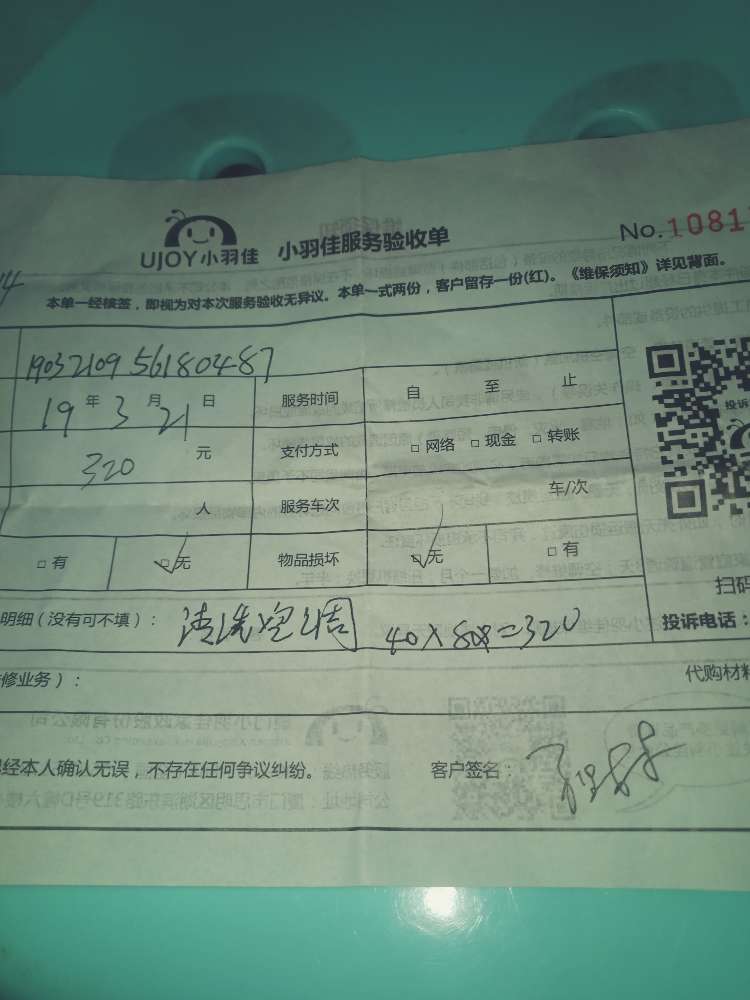 UJOY小羽佳 小羽佳服务验收单 No.1081
本单一经核签，即视为对本次服务验收无异议。本单一式两份，客户留存一份(红)。《维保须知》详见背面。
1903210956180487
19年3月21日 服务时间 自 至 止
320元 支付方式 □网络 □现金 □转账
人 服务车次 车/次
□有 □无 物品损坏 □无 □有
投诉
扫码
明细（没有可不填）： 清洗空调 40×8 =320 投诉电话：
修业务）： 代购材料
经本人确认无误，不存在任何争议纠纷。 客户签名：